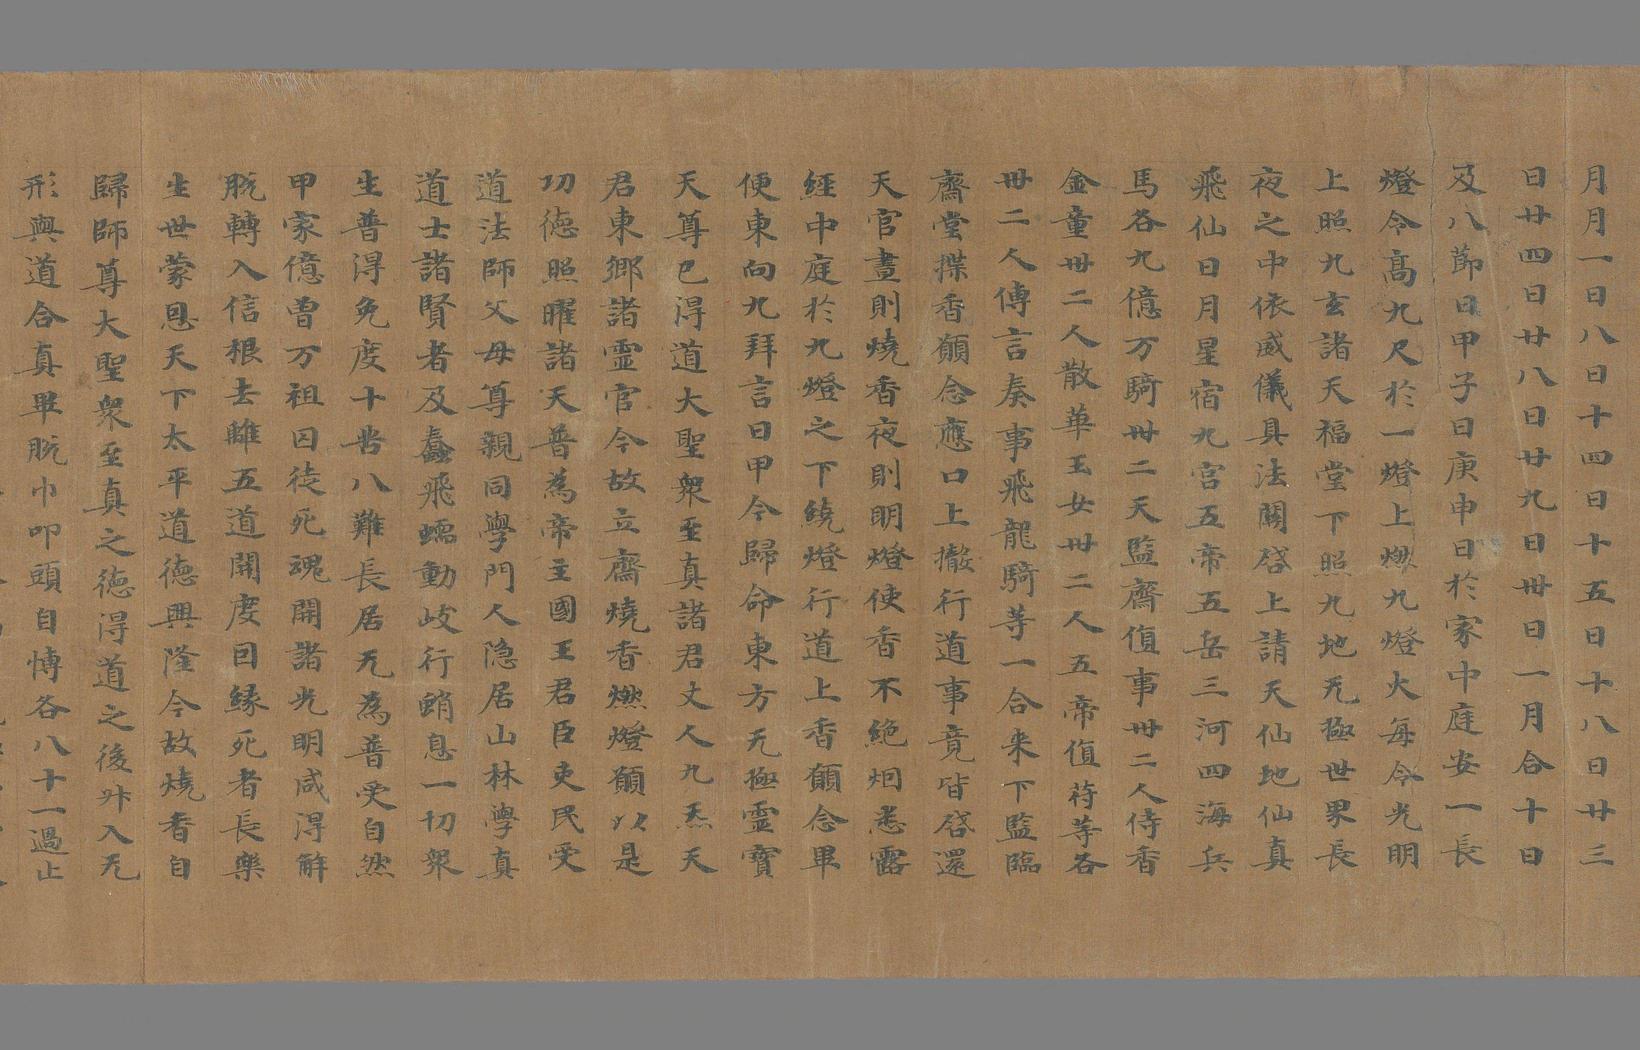 月月一日八日十四日十五日十八日廿三
日廿四日廿八日廿九日卅日一月合十日
及八節日甲子日庚申日於家中庭安一長
燈令髙九尺於一燈上燃九燈火每令光明
上照九玄諸天福堂下照九地无極世界長
夜之中依威儀具法開啓上請天仙地仙真
飛仙日月星宿九宫五帝五岳三河四海兵
馬各九億万騎卅二天監齋值事卅二人侍香
金童卅二人散華玉女卅二人五帝值苻等各
卅二人傳言奏事飛龍騎等一合来下監臨
齋堂揲香願念應口上撤行道事竟皆啓還
天官晝則燒香夜則明燈使香不絶炯悉露
經中庭於九燈之下繞燈行道上香願念畢
便東向九拜言曰甲今歸命東方无極靈寶
天尊已得道大聖衆至真諸君丈人九炁天
君東鄉諸霊官今故立齋燒香燃燈願以是
功德照曜諸天普為帝主國王君臣吏民受
道法師父母尊親同學門人隐居山林學真
道士諸賢者及蠢飛蠕動岐行蜎息一切衆
生普得免度十苦八難長居无為普受自然
甲家億曽万祖囚徒死魂開諸光明咸得解
脱轉入信根去離五道開度因緣死者長樂
生世蒙恩天下太平道德興隆今故燒香自
歸師尊大聖衆至真之德得道之後升入无
形與道合真畢脱巾叩頭自愽各八十一過止